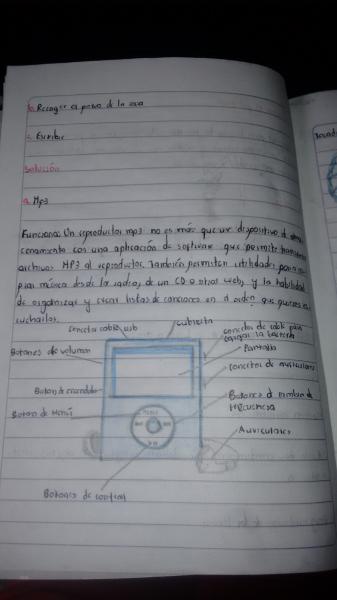 b. Recoger el polvo de la casa
c. Escribir
Solución
a. Mp3
Funciona: Un reproductor mp3 no es más que un dispositivo de alma
cenamiento con una aplicación de software que permite transferir
archivos MP3 al reproductor. También permiten utilidades para co
piar música desde la radio, de un CD o otros web, y la habilidad
de organizar y crear listas de canciones en el orden que quieras es
cucharlos.
conector cable usb
cubierta
conector de cable para
cargar la batería
Botones de volumen
Pantalla
conector de auriculares
Boton de encendido
Botones de cambio de
frecuencia
Boton de Menú
MENU
Auriculares
Botones de control